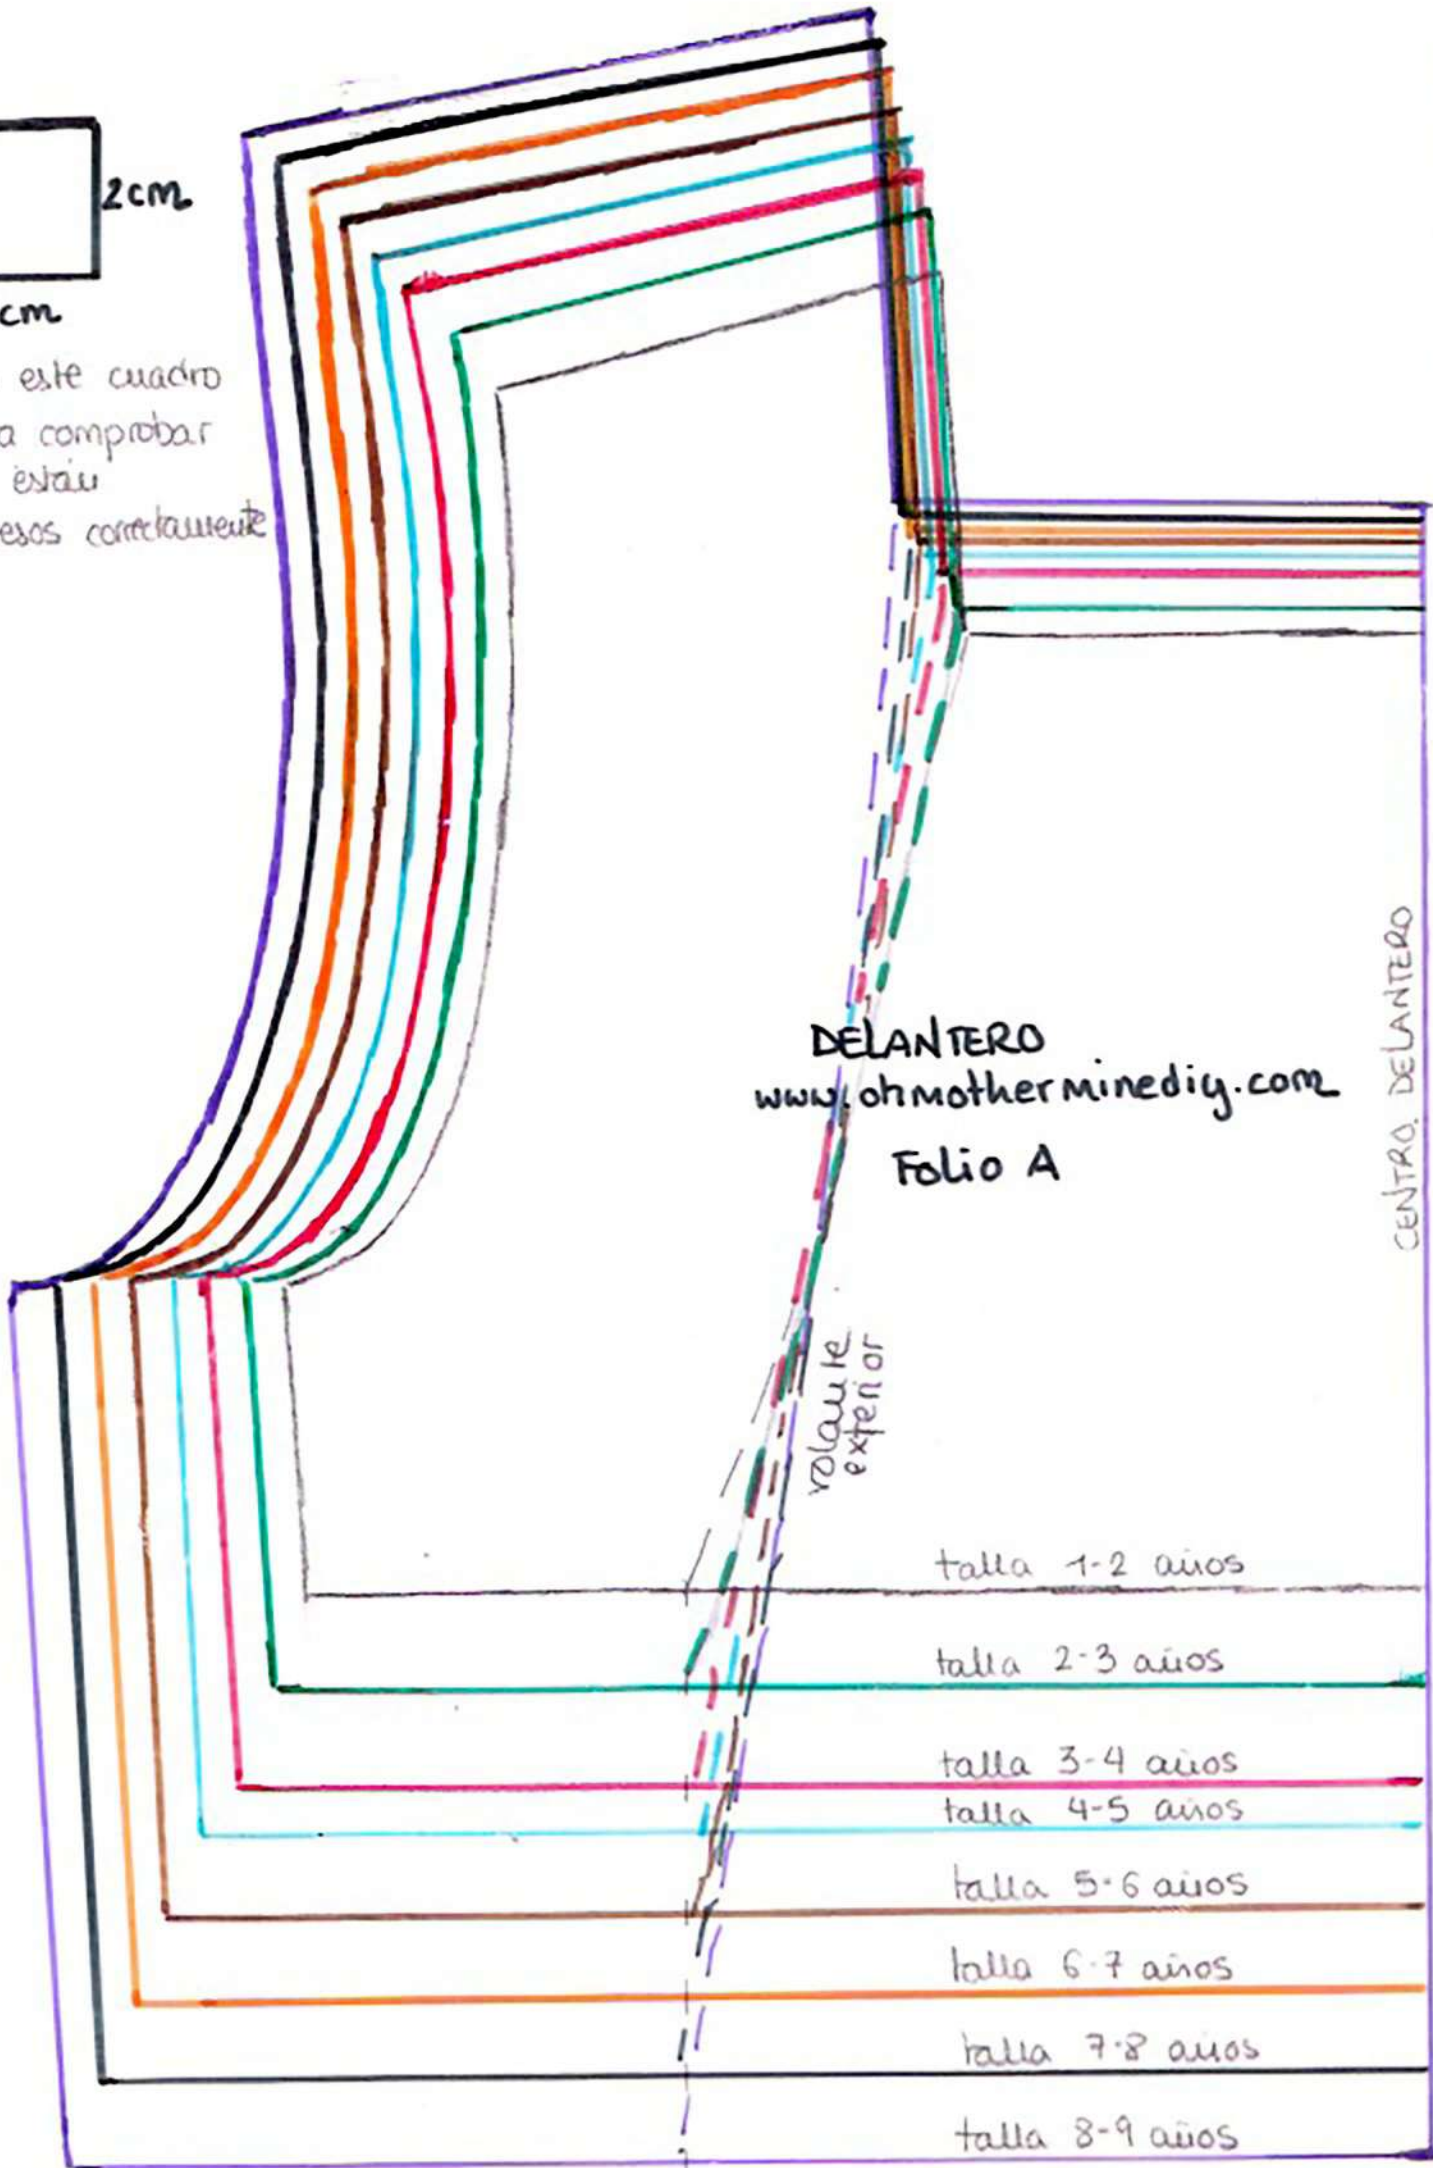 2cm
cm
este cuadro
a comprobar
están
esos correctamente
DELANTERO
www.ohmotherminediy.com
Folio A
CENTRO DELANTERO
volante
exterior
talla 1-2 años
talla 2-3 años
talla 3-4 años
talla 4-5 años
talla 5-6 años
talla 6-7 años
talla 7-8 años
talla 8-9 años